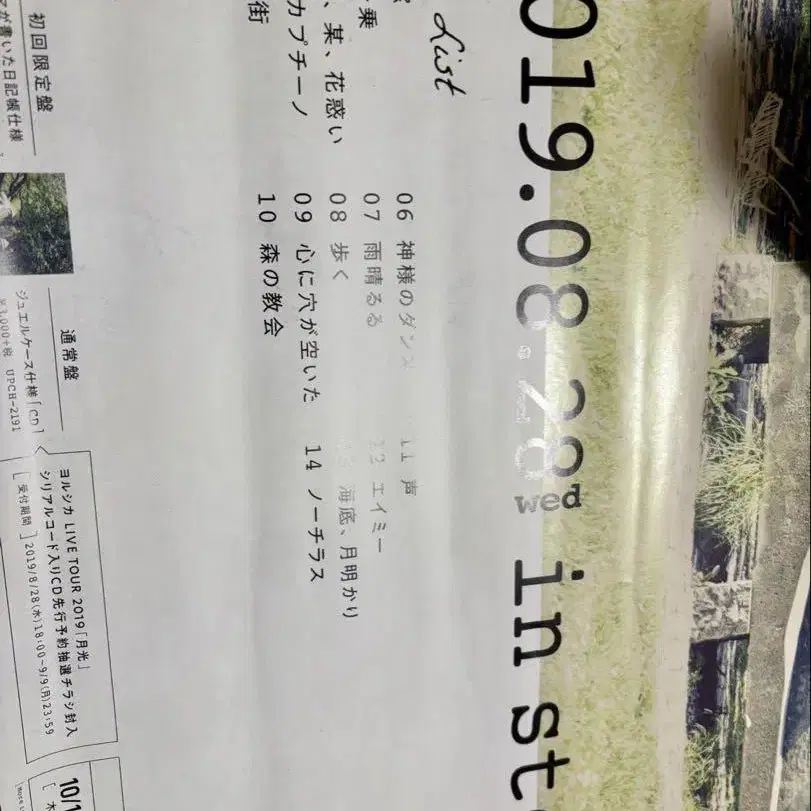 019.08.28 wed in st
List
乗
、某、花惑い
カプチーノ
街
06 神様のダンス
07 雨晴るる
08 歩く
09 心に穴が空いた
10 森の教会
11 声
12 エイミー
13 海底、月明かり
14 ノーチラス
初回限定盤
が書いた日記帳仕様
通常盤
ジュエルケース仕様「CD」
¥3,000+税 UPCH-2191
ヨルシカ LIVE TOUR 2019「月光」
シリアルコード入りCD先行予約抽選チラシ封入
[受付期間] 2019/8/28(水)18:00~9/9(月)23:59
10/1
[木